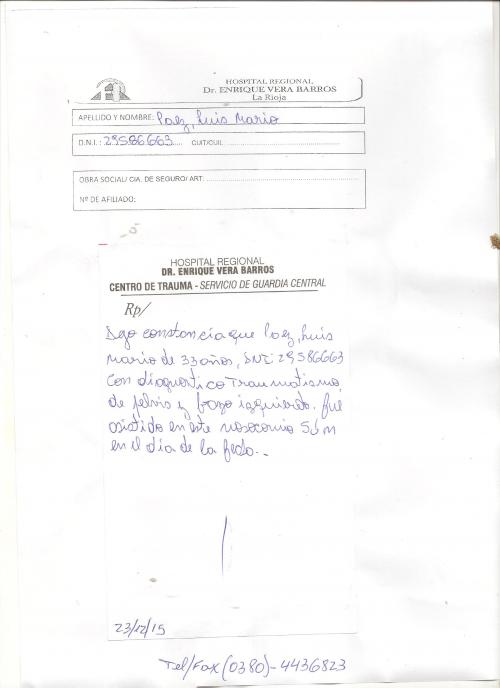 HOSPITAL REGIONAL
Dr. ENRIQUE VERA BARROS
La Rioja
APELLIDO Y NOMBRE: Paez, Luis Mario
D.N.I.: 29586663 CUIT/CUIL:
OBRA SOCIAL/ CIA. DE SEGURO/ ART.
Nº DE AFILIADO:
HOSPITAL REGIONAL
DR. ENRIQUE VERA BARROS
CENTRO DE TRAUMA - SERVICIO DE GUARDIA CENTRAL
Rp/
Dejo constancia que Paez, Luis
Mario de 33 años, DNI: 29586663
Con diagnostico Traumatismo
de pelvis y brazo izquierdo. fue
asistido en este nosocomio
en el día de la fecha..
23/12/15
Tel/Fax (0380)-4436823